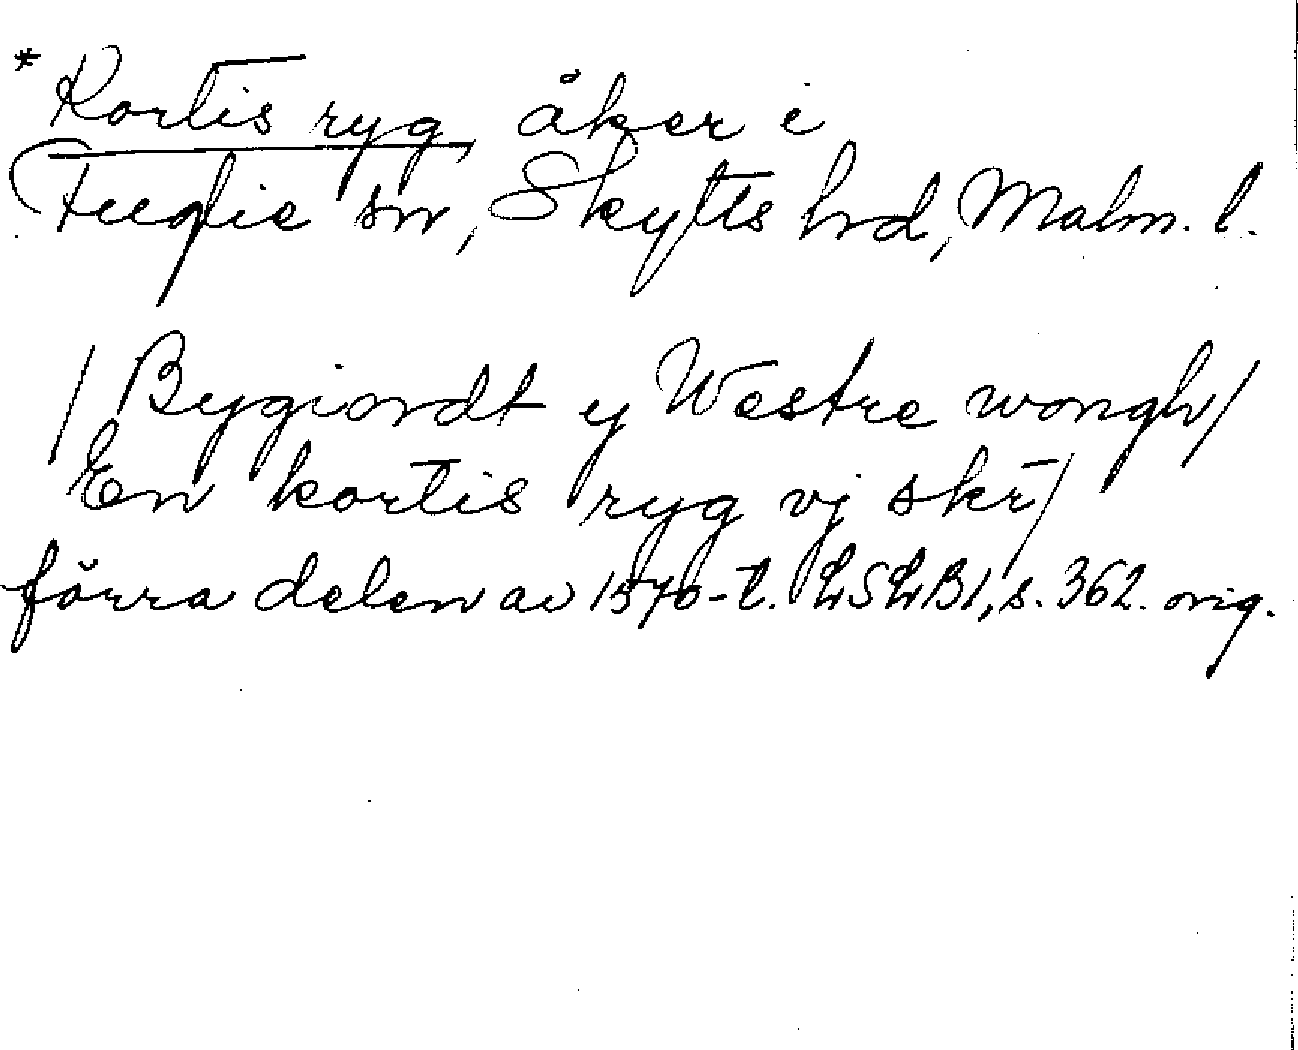 *Kortis ryg, åker i
Fuglie sn, Skytts hrd, Malm. l.
/Bygiordt y Westre wongh/
En kortis ryg vj skr/
förra delen av 1570-t. LSLB1, s. 362. orig.